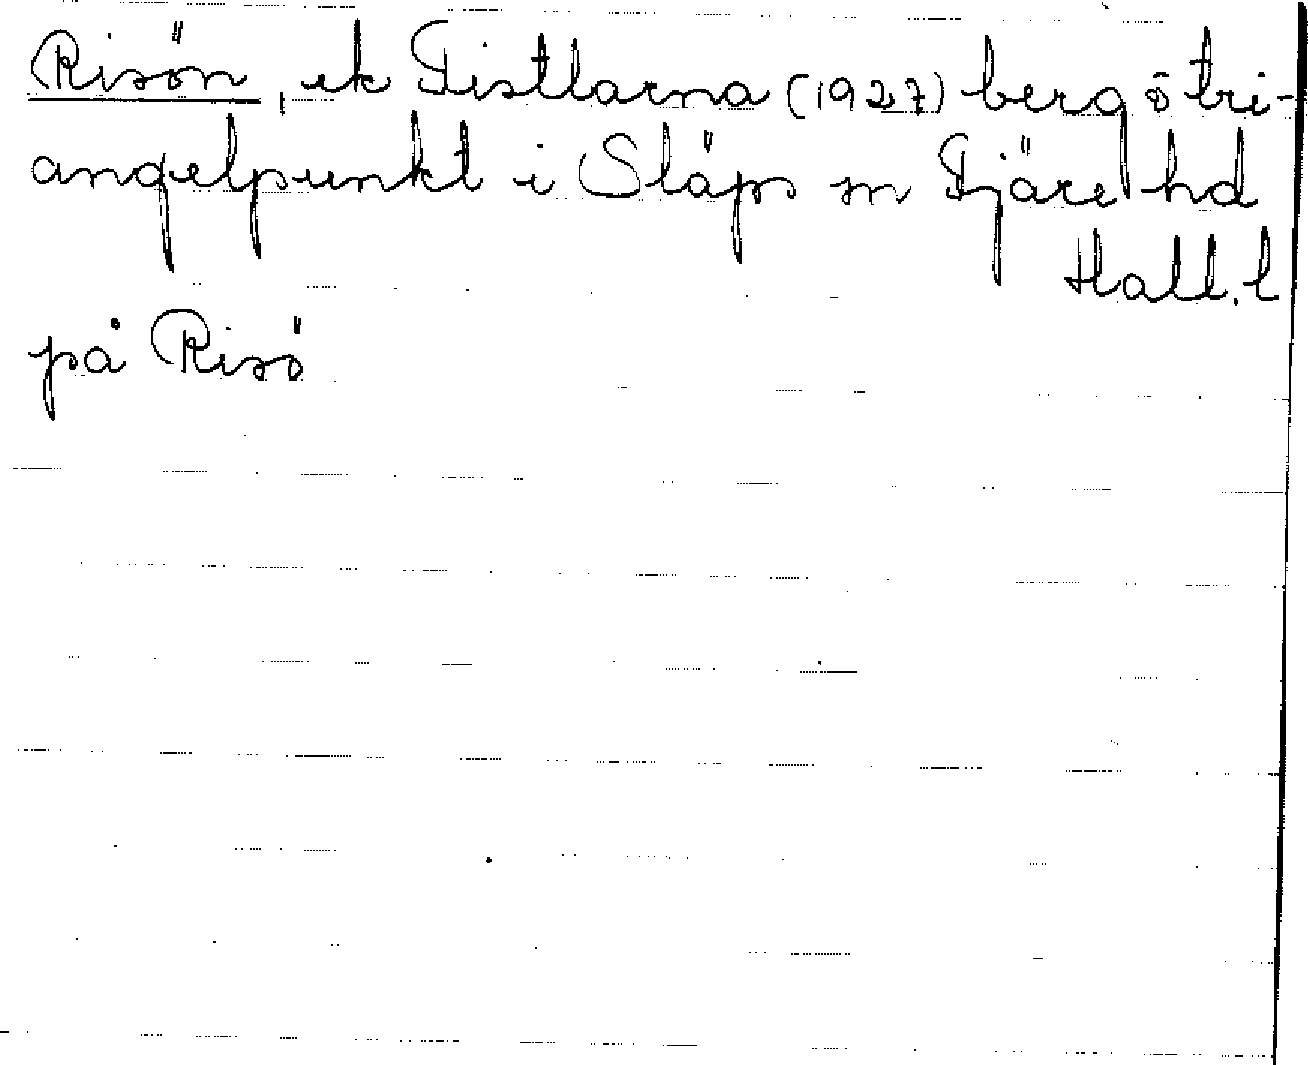 Risön, ek Tistlarna (1927) berg ö tri-
angelpunkt i Släps sn Fjäre hd
Hall. l
på Risö